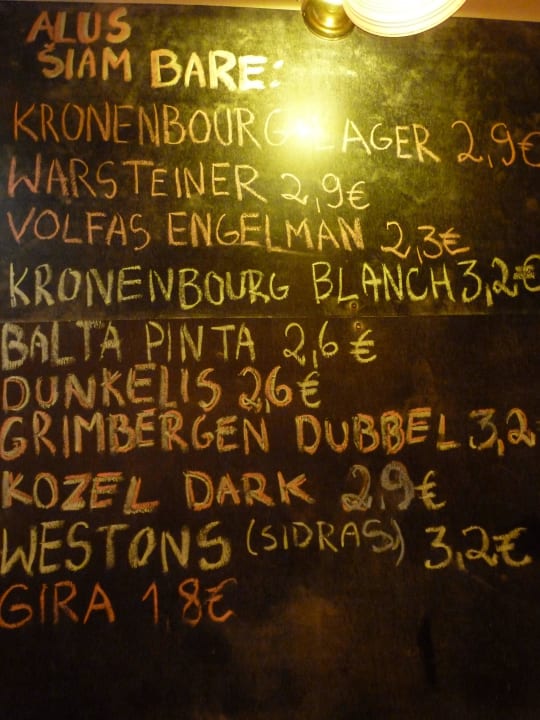 ALUS
ŠIAM BARE:
KRONENBOURG LAGER 2,9€
WARSTEINER 2,9€
VOLFAS ENGELMAN 2,3€
KRONENBOURG BLANCH 3,2€
BALTA PINTA 2,6€
DUNKELIS 2,6€
GRIMBERGEN DUBBEL 3,2
KOZEL DARK 2,9€
WESTONS (SIDRAS) 3,2€
GIRA 1,8€